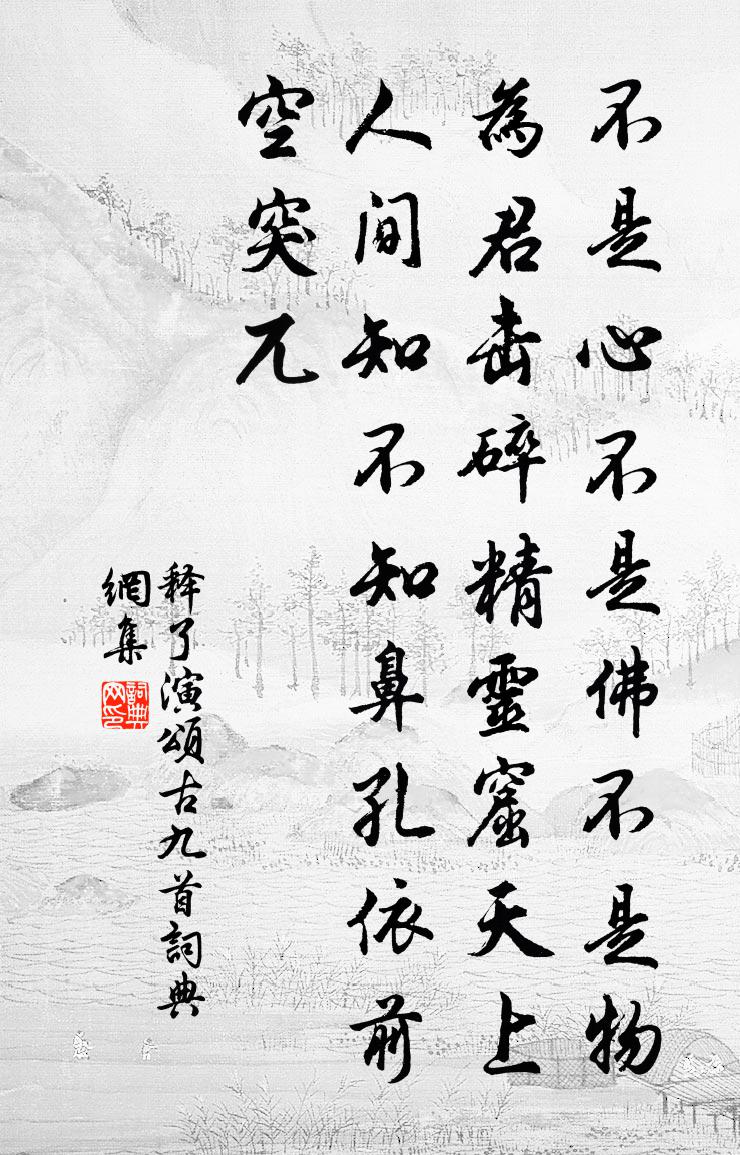 不是心不是佛不是物
為君击碎精靈窟天上
人间知不知鼻孔依前
空突兀
释了演頌古九首詞典
網集
詞典
网印